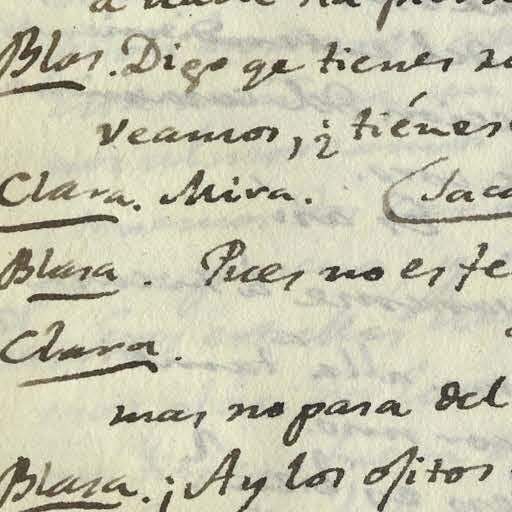 Blas. Digo qe tienes
veamos, ¿ tiénes
Clara. Mira. (Saca
Blasa. Pues no es fe
Clara.
mas no pasa del
Blasa. ¡Ay los ojitos